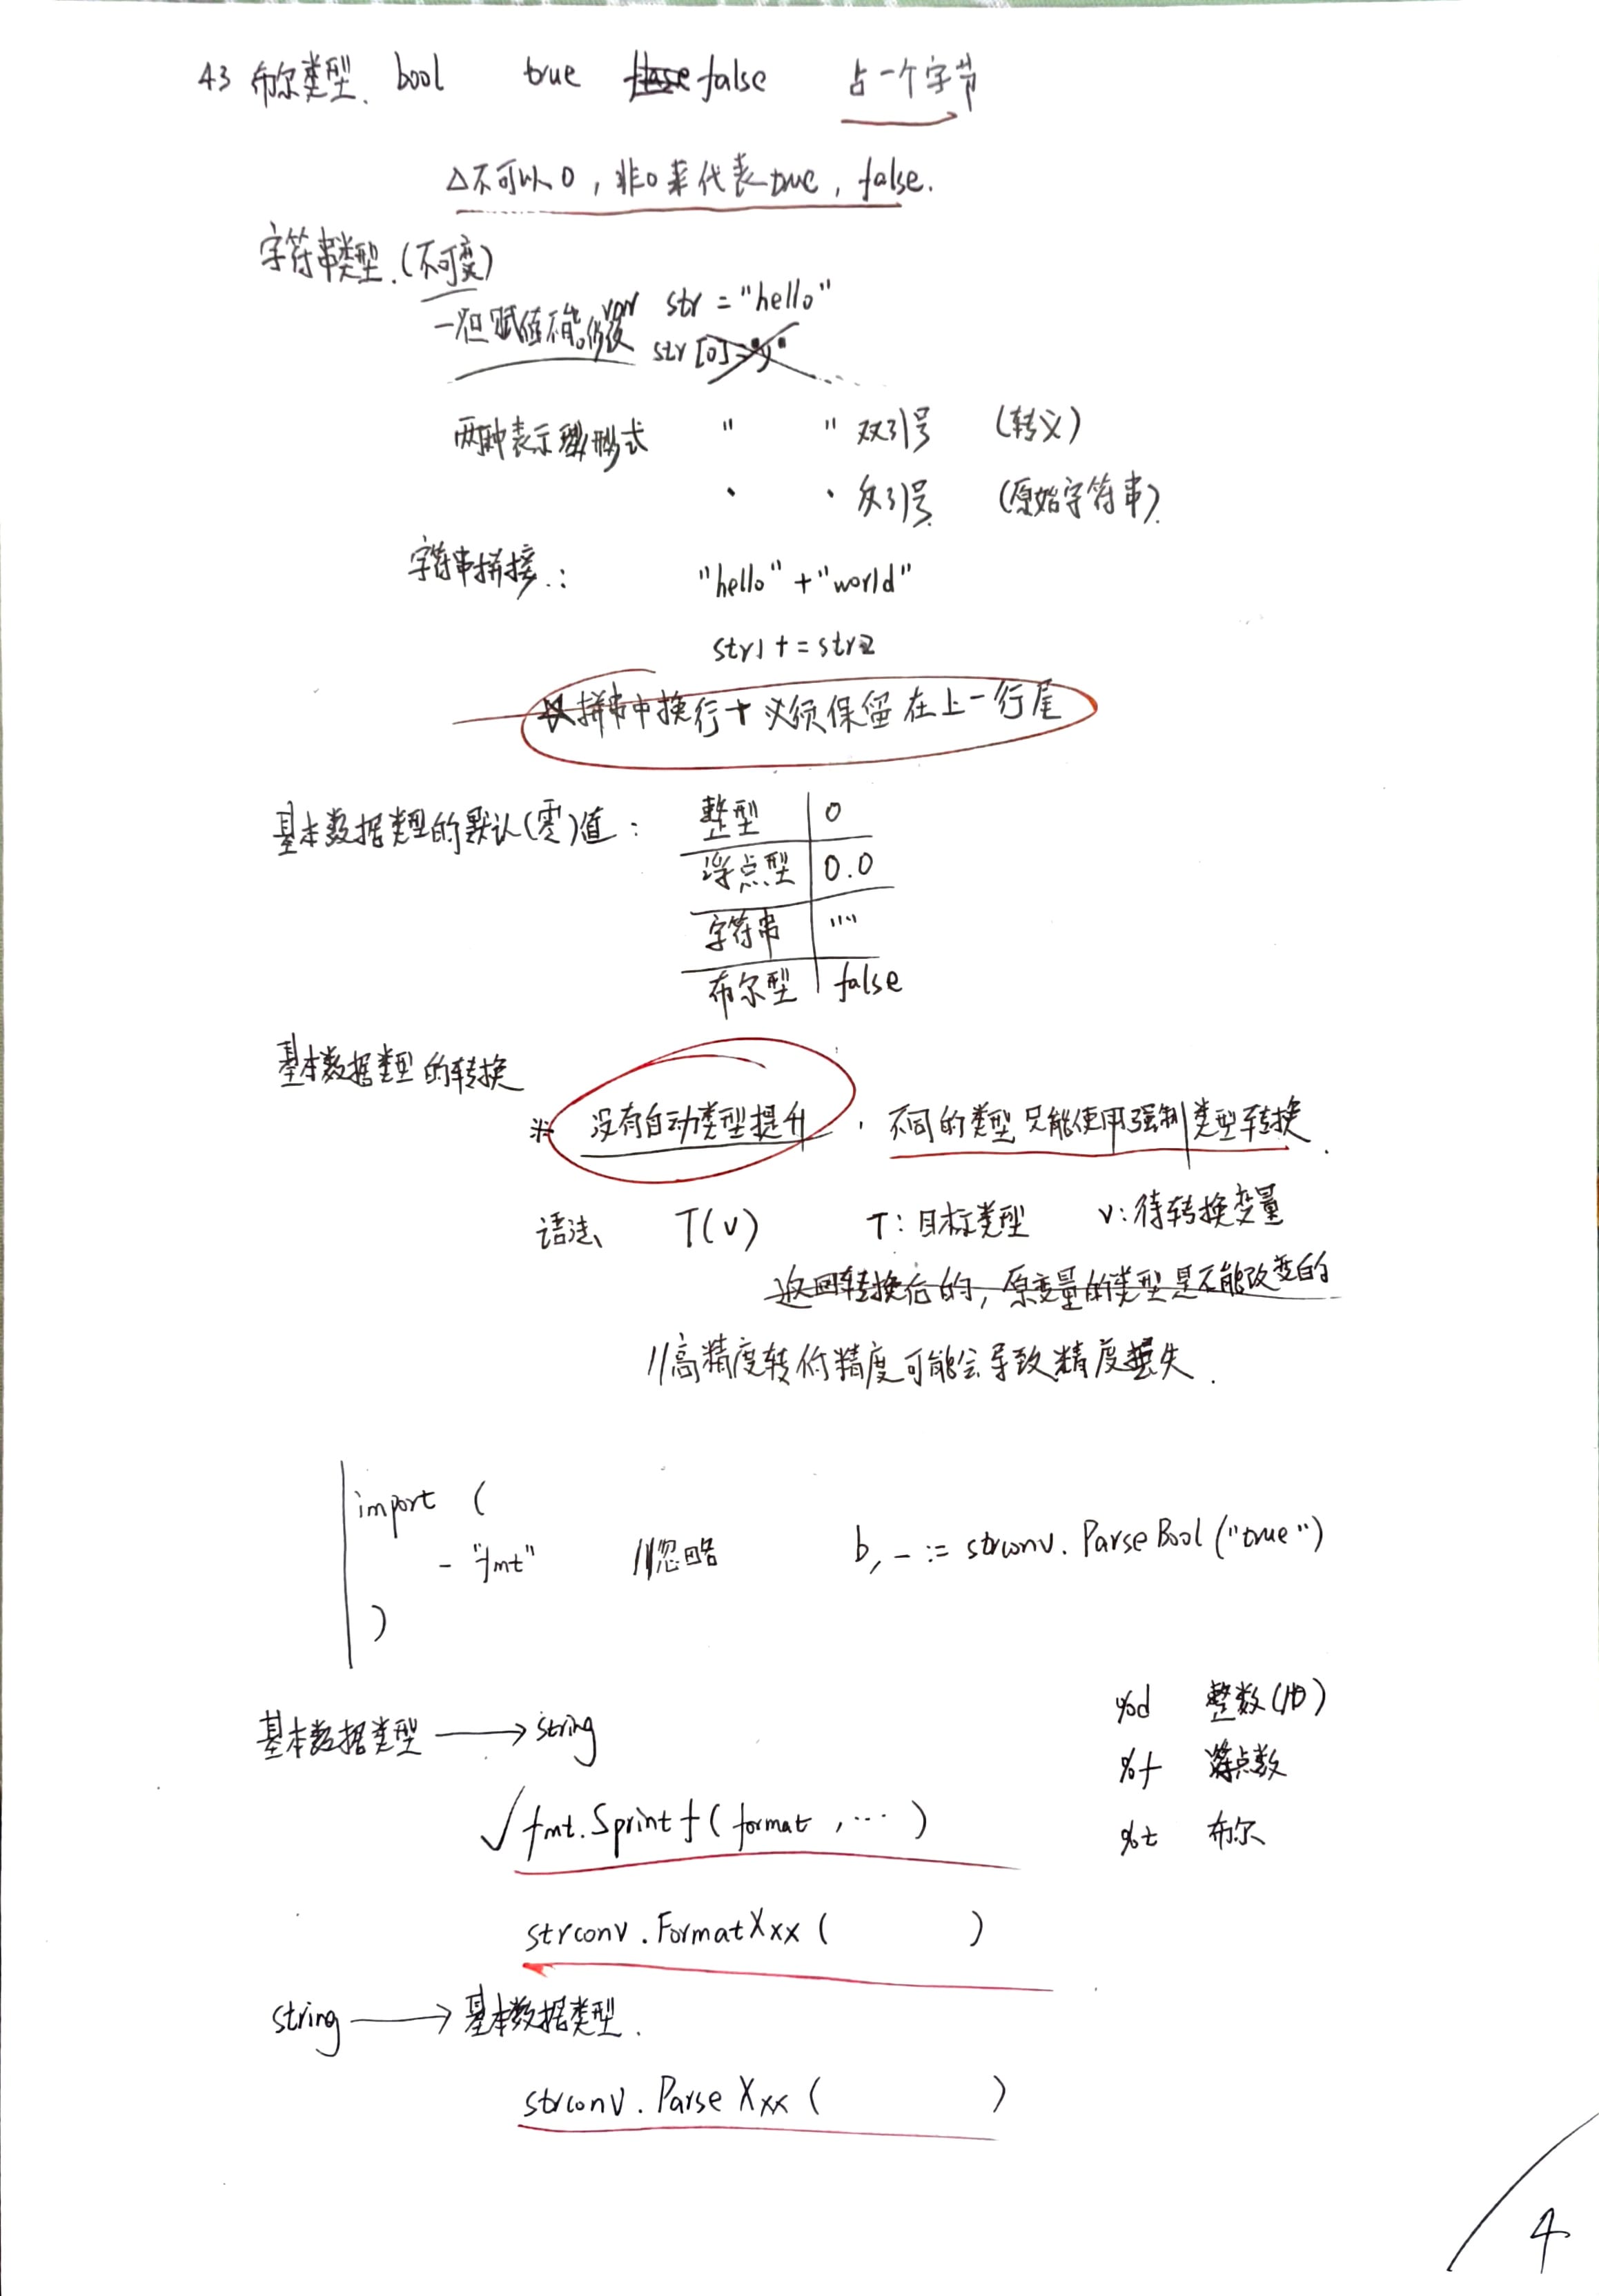 43 布尔类型. bool true false 占一个字节
△不可以0，非0来代表true，false.
字符串类型.(不可变)
一旦赋值不能修改 var str = "hello"
str[0]="y"
两种表示形式 " " 双引号 (转义)
` ` 反引号 (原始字符串).
字符串拼接.: "hello"+"world"
str1+=str2
☆拼串中换行+必须保留在上一行尾
基本数据类型的默认(零)值: 整型 0
浮点型 0.0
字符串 ""
布尔型 false
基本数据类型的转换
※ 没有自动类型提升，不同的类型只能使用强制类型转换.
语法、 T(v) T:目标类型 v:待转换变量
返回转换后的，原变量的类型是不能改变的
//高精度转低精度可能会导致精度丢失.
import (
_ "fmt" //忽略 b,_ := strconv.ParseBool("true")
)
%d 整数(10)
基本数据类型 → string
%f 浮点数
√fmt.Sprintf(format,…)
%t 布尔
strconv.FormatXxx( )
string → 基本数据类型.
strconv.ParseXxx( )
4